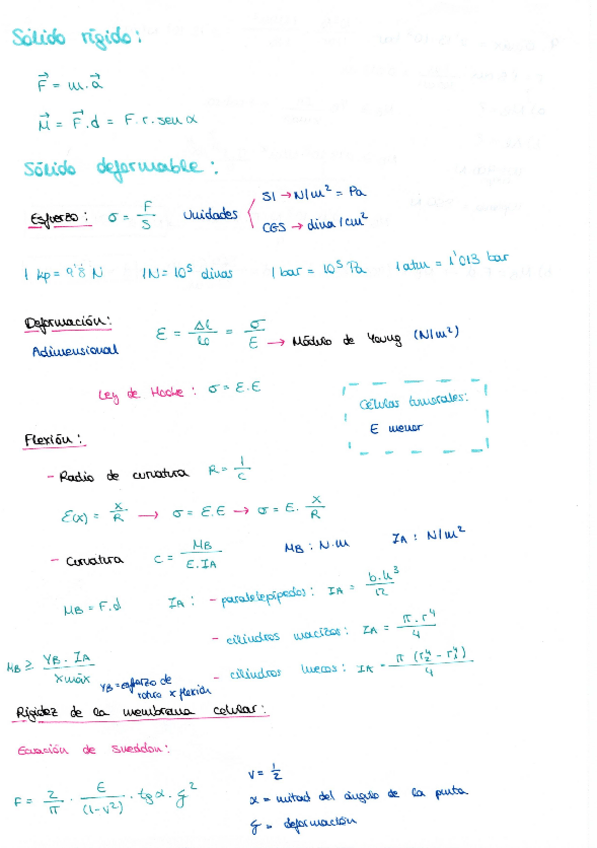 Sólido rígido:
F⃗ = m.a⃗
M⃗ = F⃗.d = F.r.sen α
Sólido deformable:
Esfuerzo: σ = F/S Unidades SI → N/m² = Pa
CGS → dina/cm²
1 kp = 9'8 N 1N = 10⁵ dinas 1 bar = 10⁵ Pa 1 atm = 1'013 bar
Deformación: ε = Δl/l₀ = σ/E → Módulo de Young (N/m²)
Adimensional
Ley de Hooke: σ = ε.E
Células tumorales:
E menor
Flexión:
- Radio de curvatura R = 1/C
ε(x) = x/R → σ = E.ε → σ = E. x/R
- Curvatura C = MB/E.IA MB: N.m IA: N/m²
MB = F.d IA: - paralelepípedos: IA = b.h³/12
- cilindros macizos: IA = π.r⁴/4
MB ≥ YB.IA/xmáx YB = esfuerzo de rotura x flexión - cilindros huecos: IA = π (r₂⁴ - r₁⁴)/4
Rigidez de la membrana celular:
Ecuación de Sneddon:
F = 2/π . E/(1-ν²) . tg α . ξ²
ν = 1/2
α = mitad del ángulo de la punta
ξ = deformación